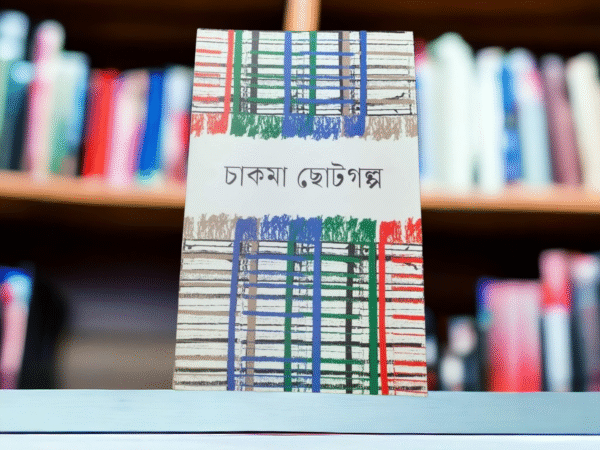 চাকমা ছোটগল্প